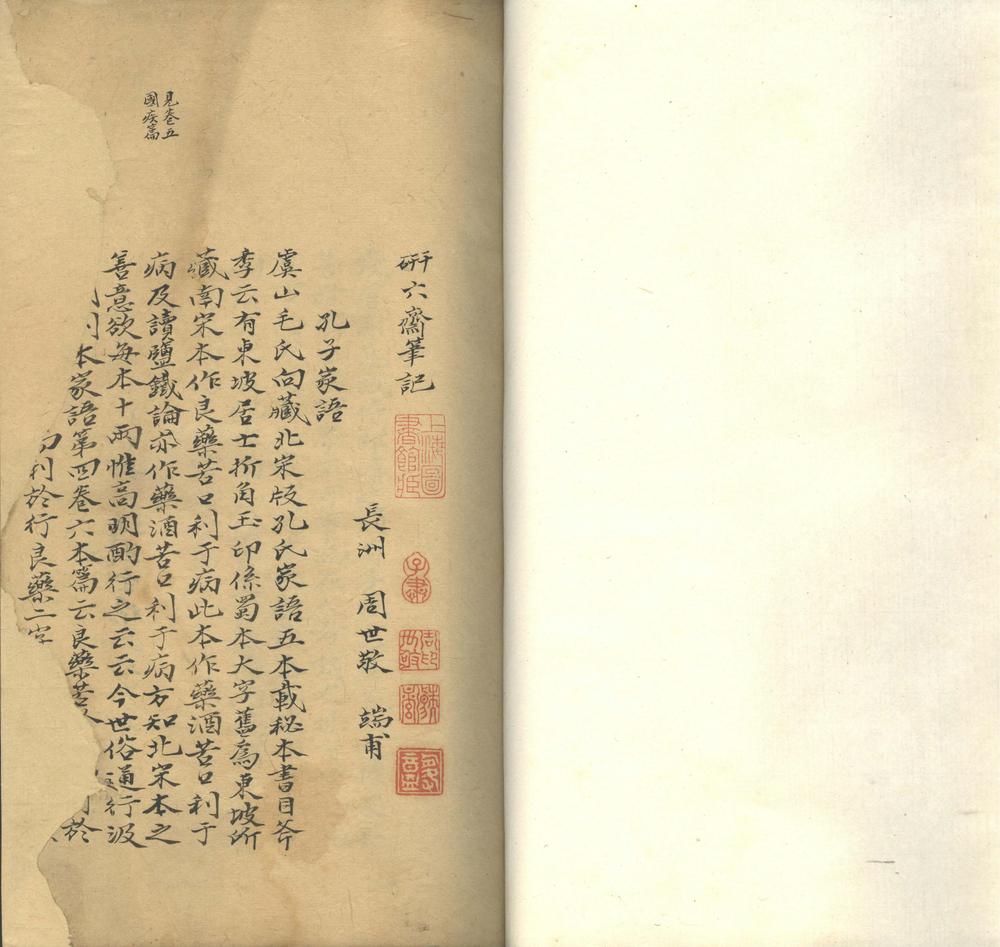 研六齋筆記
上海圖書館臧
子肅
周世敬印
多益
長洲 周世敬 端甫
孔子家語
虞山毛氏向臧北宋版孔氏家語五本載秘本書目斧
季云有東坡居士折角玉印係蜀本大字舊爲東坡所
藏南宋本作良藥苦口利于病此本作藥酒苦口利于
病及讀鹽鐵論亦作藥酒苦口利于病方知北宋本之
善意欲每本十兩惟高明酌行之云云今世俗通行汲
本家語第四卷六本篇云良藥苦
於
利於行良藥二字
見卷五
國疾篇